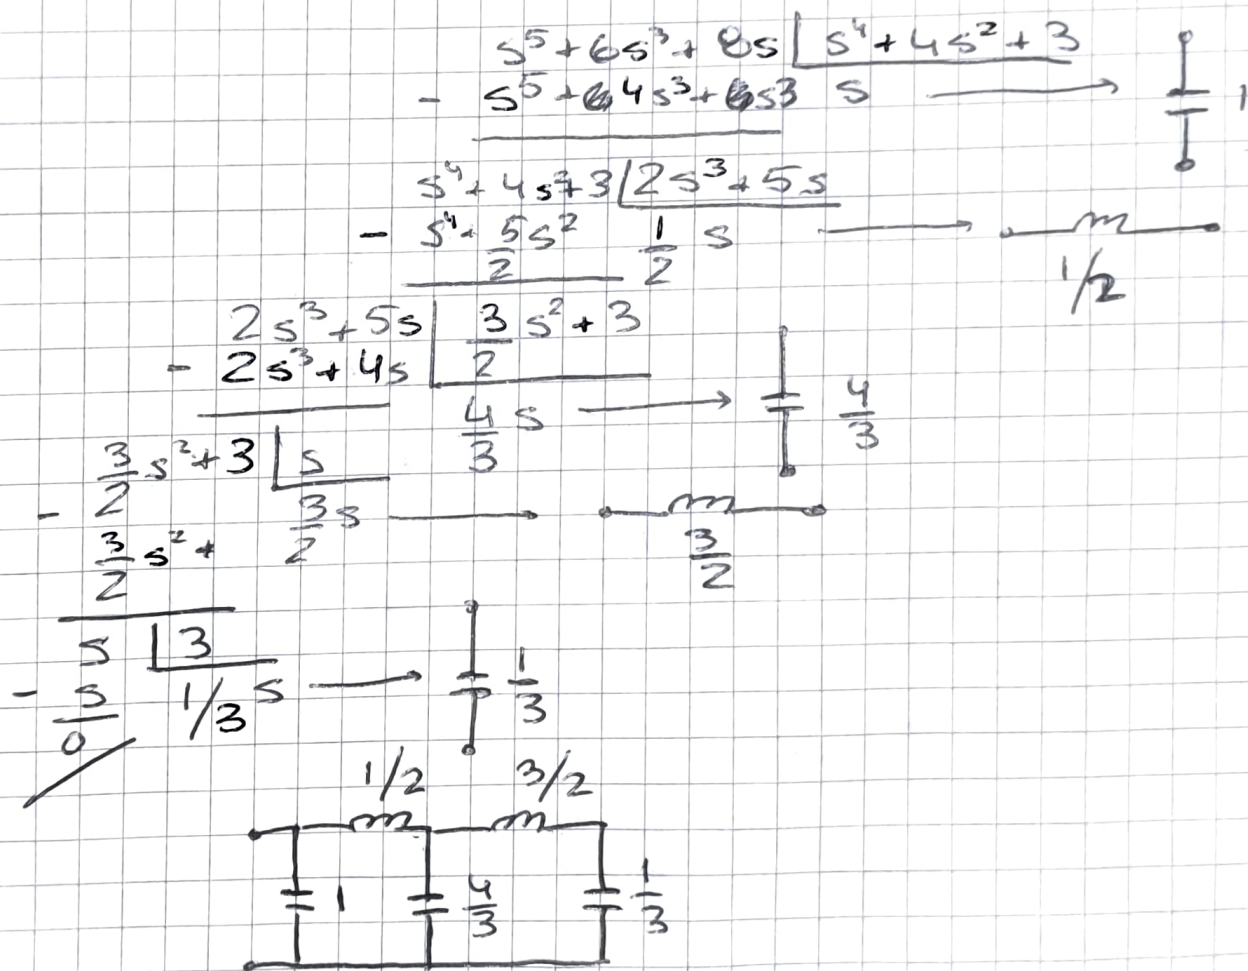 s⁵ + 6s³ + 8s | s⁴ + 4s² + 3
- s⁵ + 4s³ + s3 s → 1
s⁴ + 4s² + 3 | 2s³ + 5s
- s⁴ + 5/2 s² 1/2 s → 1/2
2s³ + 5s | 3/2 s² + 3
- 2s³ + 4s 4/3 s → 4/3
3/2 s² + 3 | s
- 3/2 s² + 3/2 s → 3/2
s | 3
- s 1/3 s → 1/3
0
1/2 3/2
1 4/3 1/3